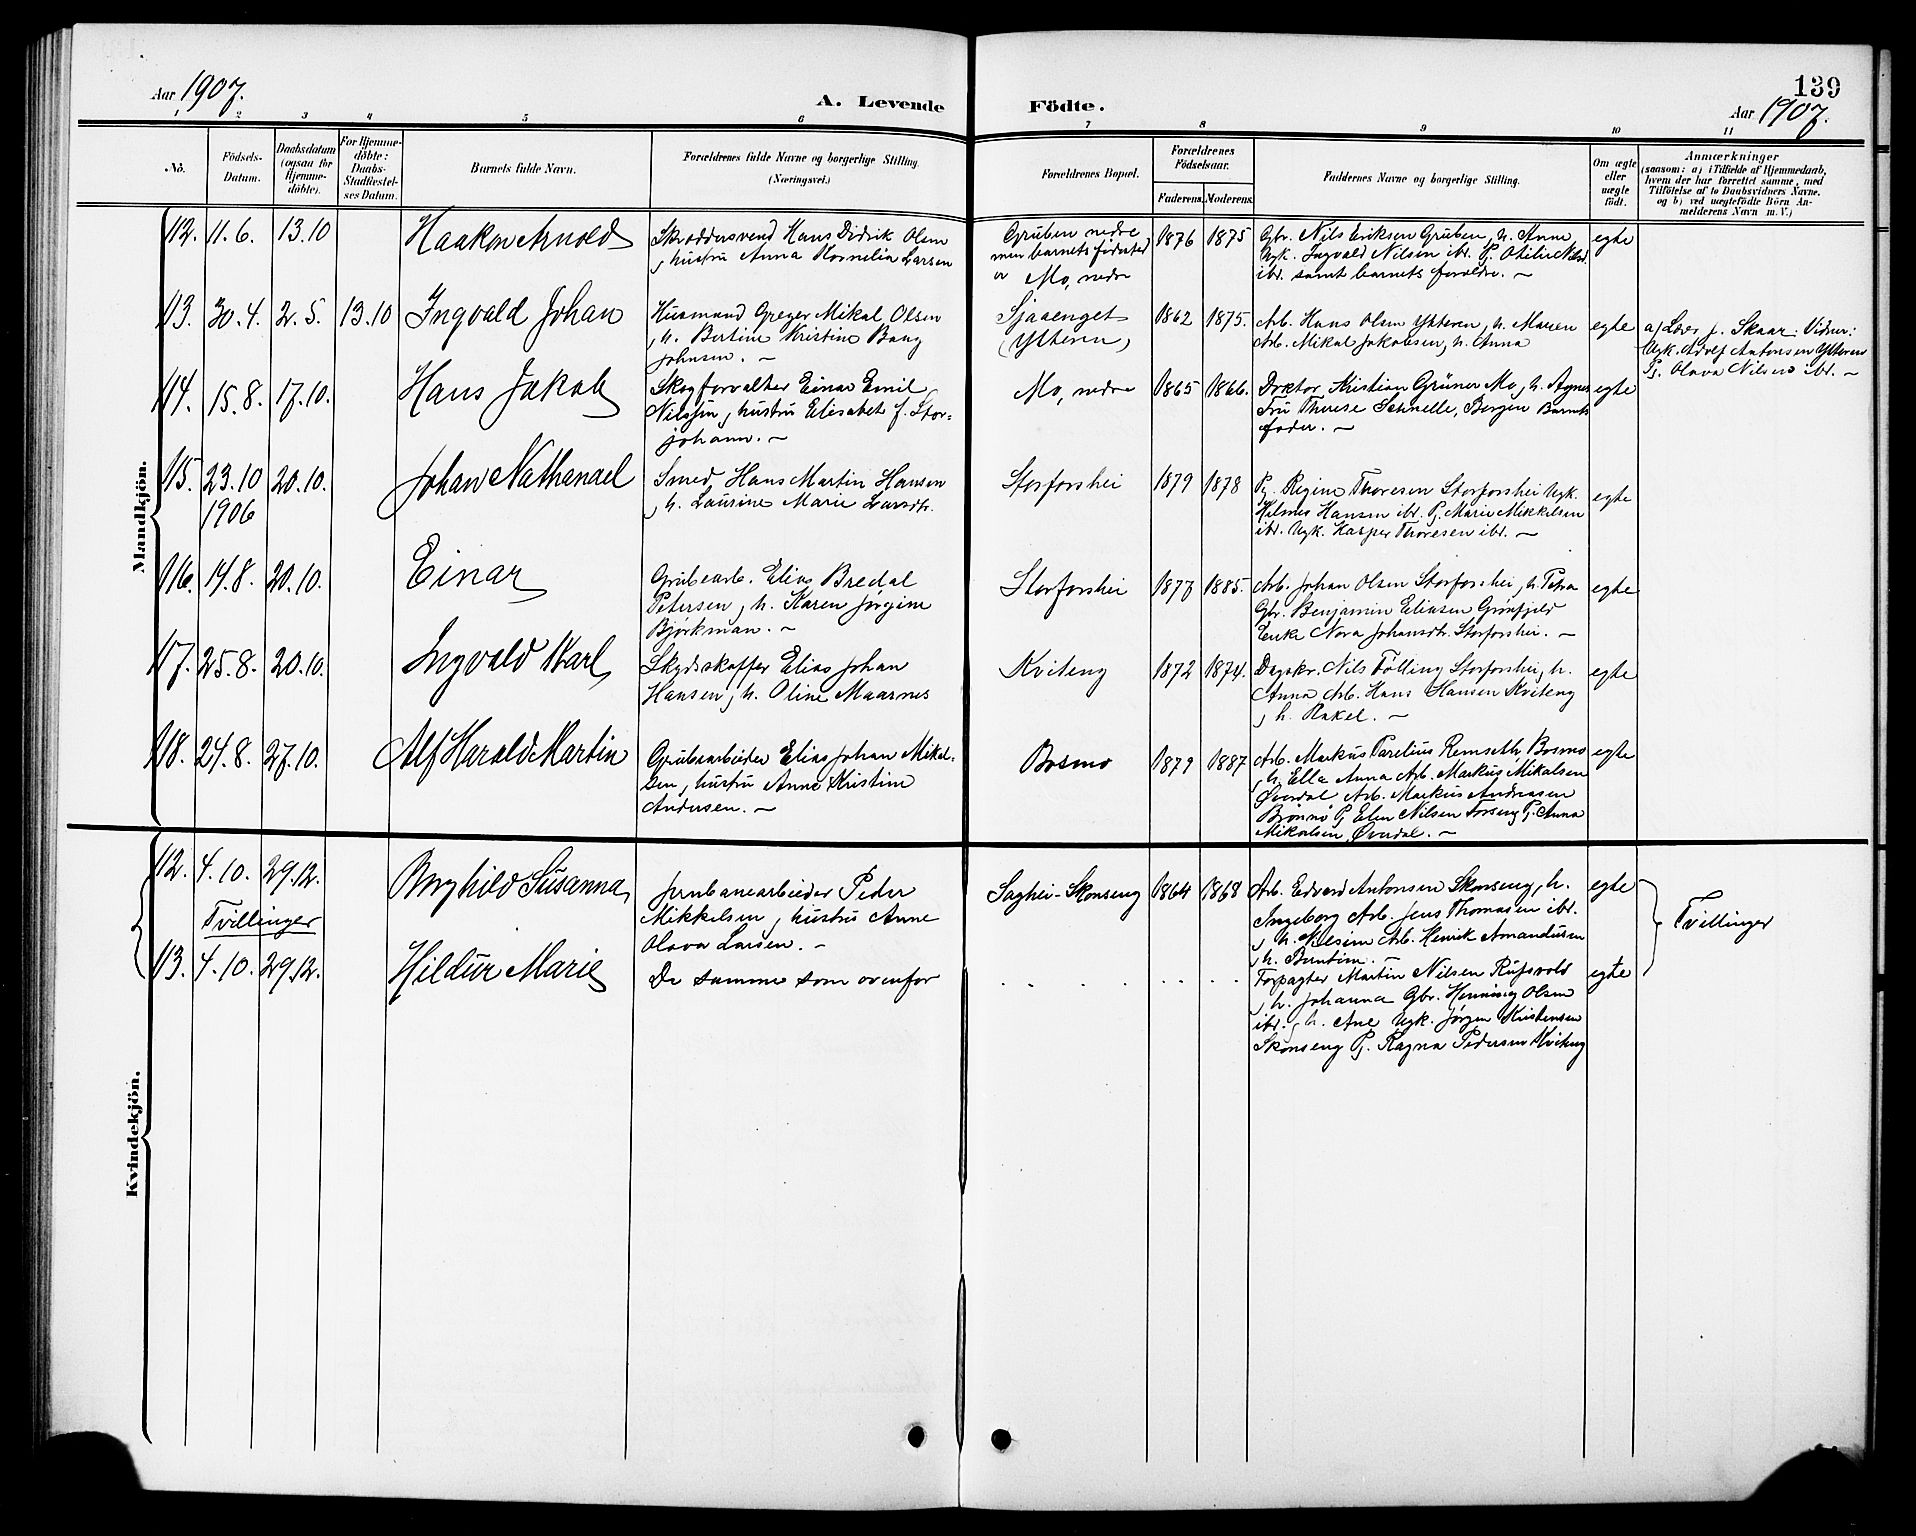 139
Aar 1907.
A. Levende
Födte.
Aar 1907.
1 2 3 4 5 6 7 8 9 10 11
No.
Födsels-
Datum.
Daabsdatum
(ogsaa for
Hjemme-
döbte).
For Hjemme-
döbte:
Daabs-
Stadfæstel-
ses Datum.
Barnets fulde Navn.
Forældrenes fulde Navne og borgerlige Stilling.
(Næringsvei.)
Forældrenes Bopæl.
Forældrenes
Födselsaar.
Faderens. Moderens.
Faddernes Navne og borgerlige Stilling.
Om ægte
eller
uægte
født.
Anmærkninger
(saasom: a) i Tilfælde af Hjemmedaab,
hvem der har forrettet samme, med
Tilføielse af to Daabsvidners Navne.
og b) ved uægtefødte Börn An-
melderens Navn m. V.)
Mandkjön.
12. 11.6. 13.10 Haakon Arnold
Skræddersvend Hans Didrik Olsen
, hustru Anna Kornelia Larsen
Gruben nedre
men barnets fødested
er Mo, nedre
1876 1875
Gbr. Nils Eriksen Gruben, h. Anne
Ugk. Ingvald Nilsen ibr. Pg. Otilie Nilsd.
ibr. samt barnets forældre. —
egte
13. 30.4. 2.5. 13.10 Ingvald Johan
Husmand Greger Mikal Olsen
, h. Bertine Kristine Bang
Johnsen. —
Sjaaenget
(Ytteren)
1862 1875.
Arb. Hans Olsen Ytteren, h. Maren
Arb. Mikal Jakobsen, h. Anna
egte
a) Lærer J. Skaar: Vidner:
Ugk. Adolf Antonsen Ytteren
Pg. Olava Nilsen ibr. —
14. 15.8. 17.10. Hans Jakob
Skogforvalter Einar Emil
Nilssen, hustru Elisabeth f. Stor-
johann. —
Mo, nedre
1865 1866.
Doktor Kristian Grüner Mo, h. Agnes
Fru Therese Schnelle, Bergen Barnets
fader. —
egte
15. 23.10 20.10. Johan Nathanael
1906
Smed Hans Martin Hansen
, h. Laurine Marie Larsdtr.
Storforshei
1879 1878
Pg. Regine Thoresen Storforshei Ugk.
Hansen ibr. Pg. Marie Mikkelsen
ibr. Ugk. Kasper Thoresen ibr. —
egte
16. 14.8. 20.10. Einar
Grubearb. Elias Bredal
Petersen, h. Karen Jørgine
Bjørkman. —
Storforshei
1877 1885.
Arb. Johan Olsen Storforshei, h. Petra
Gbr. Benjamin Eliasen Grønfjeld
Enke Nora Johansdtr. Storforshei. —
egte
17. 25.8. 20.10. Ingvald Karl
Skydsskaffer Elias Johan
Hansen, h. Oline Maarnes
Kviteng
1872 1874.
Nils Følling Storforshei, h.
Anna Arb. Hans Hansen Kviteng
, h. Rakel. —
egte
18. 24.8. 27.10. Alf Harald Martin
Grubearbeider Elias Johan Mikal-
sen, hustru Anne Kristine
Andersen. —
Bosmo
1879 1887
Arb. Markus Parelius Remseth, Bosmo
, h. Ella Anna Arb. Markus Mikalsen
Øverdal Arb. Markus Andreasen
Brønnø Pg Elen Nilsen Forseng Pg. Anna
Mikalsen, Øverdal. —
egte
Kvindekjön.
12. 4.10. 29.12. Borghild Susanna
Tvillinger
Jernbanearbeider Peder
Mikkelsen, hustru Anne
Olava Larsen. —
Saghei-Skonseng
1864 1868
Arb. Edvard Antonsen Skonseng, h.
Ingeborg Arb. Jens Thomasen ibr.
, h. Nilsine Arb. Henrik Amandusen
, h. Berntine. —
egte
Tvillinger
13. 4.10. 29.12. Hildur Marie
De samme som ovenfor
. . . . . . .
Forpagter Martin Nilsen Rufsvold
, h. Johanna Gbr. Henning Olsen
ibr. , h. Ane Ugk. Jørgen Kristensen
Skonseng Pg. Ragna Pedersen Kviteng
egte